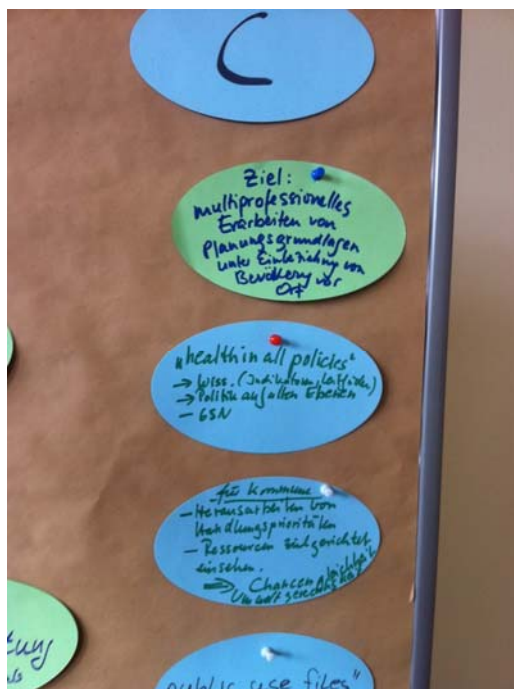 C
Ziel:
multiprofessionelles
Erarbeiten von
Planungsgrundlagen
unter Einbeziehung von
Bevölkerung vor
Ort
„health in all policies"
→ wiss. (Indikatoren, Leitfäden)
→ Politik auf allen Ebenen
- GSN
für Kommune
- Herausarbeiten von
Handlungsprioritäten
- Ressourcen zielgerichtet
einsetzen.
⇒ Chancengleichheit
Umweltgerechtigkeit
public use files"